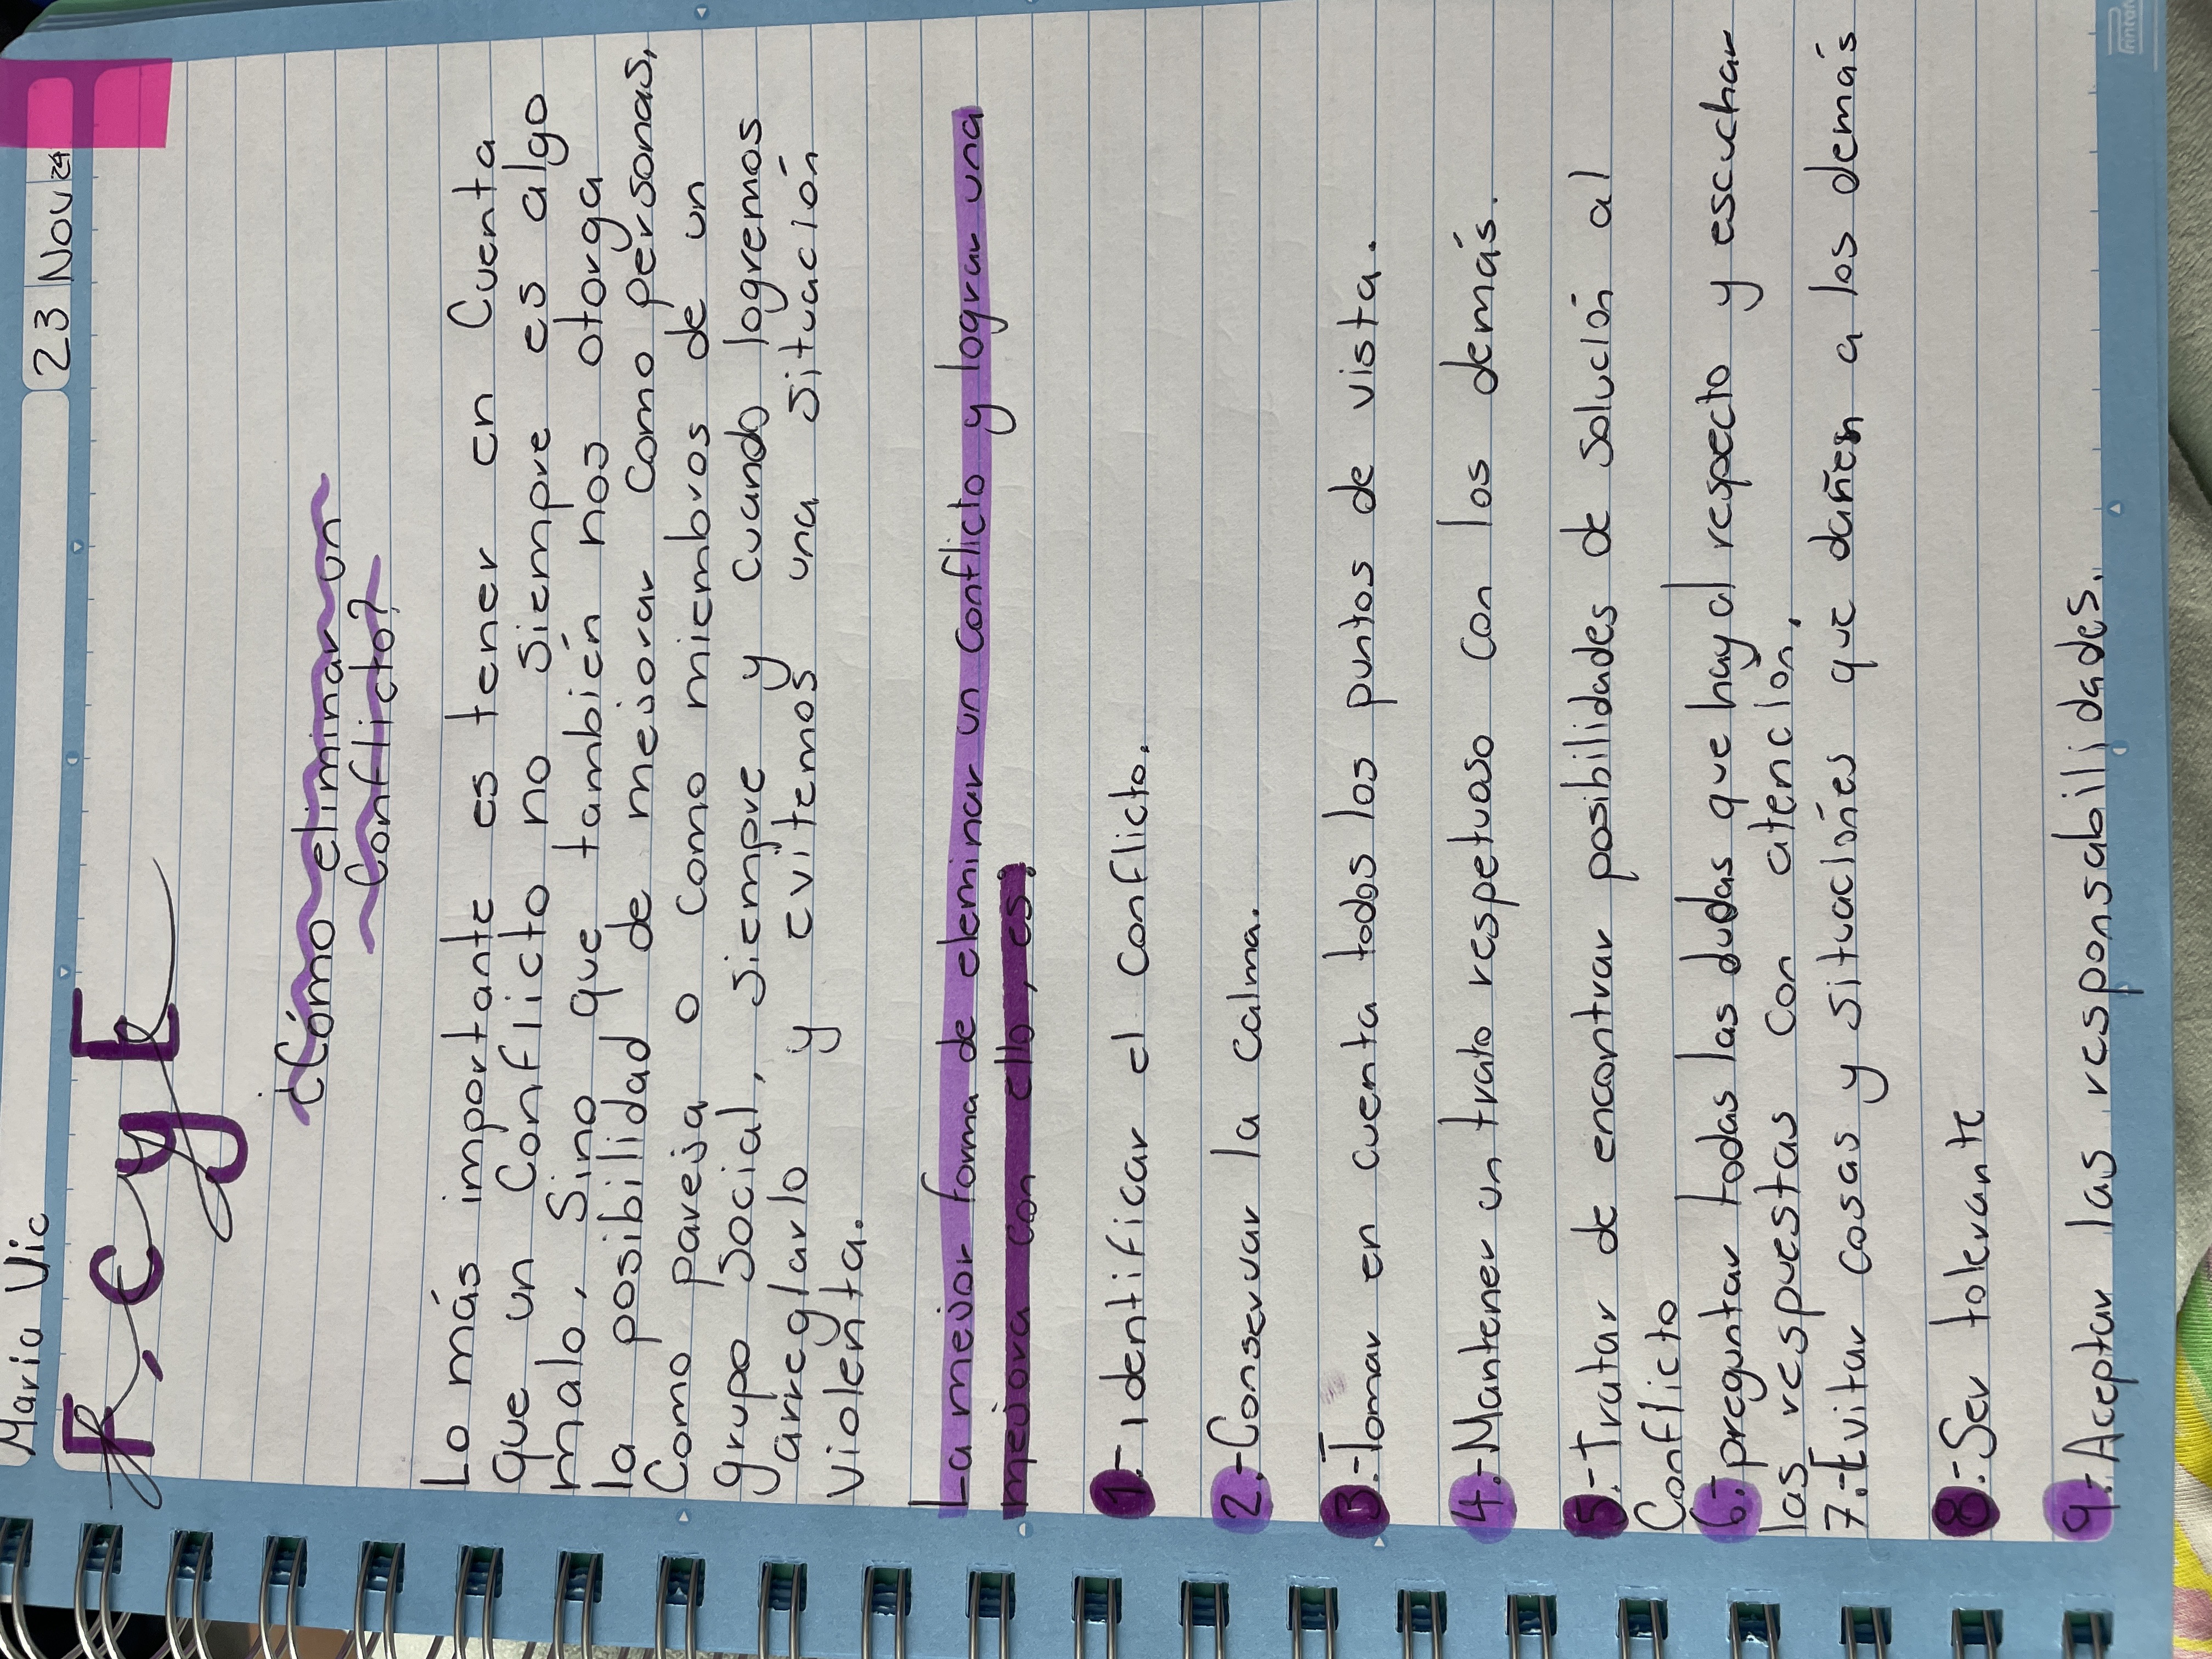 Maria Vic
23 Nov 24
F.c y E
¿Cómo eliminar un
conflicto?
Lo más importante es tener en cuenta
que un conflicto no siempre es algo
malo, sino que también nos otorga
la posibilidad de mejorar como personas,
como pareja o como miembros de un
grupo social, siempre y cuando logremos
arreglarlo y evitemos una situación
violenta.
La mejor foma de eleminar un conflicto y lograr una
mejora con ello, es.
1.- identificar el conflicto.
2.- Conservar la calma.
3.- Tomar en cuenta todos los puntos de vista.
4.- Mantener un trato respetuoso con los demás.
5.- Tratar de encontrar posibilidades de solución al
conflicto
6.- preguntar todas las dudas que hay al respecto y escuchar
las respuestas con atención.
7.- Evitar cosas y situaciónes que dañen a los demás
8.- Ser tolerante
9.- Aceptar las responsabilidades.